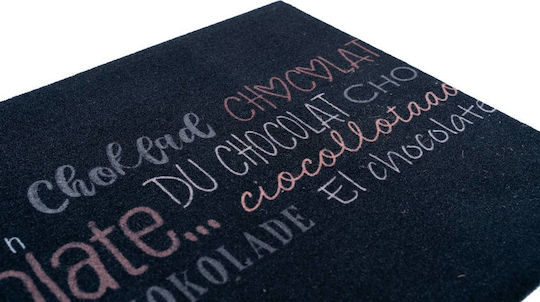 Choklad CHOCOLAT
DU CHOCOLAT CHO
ciocollotaaa
n
olate... El chocolate
OKOLADE